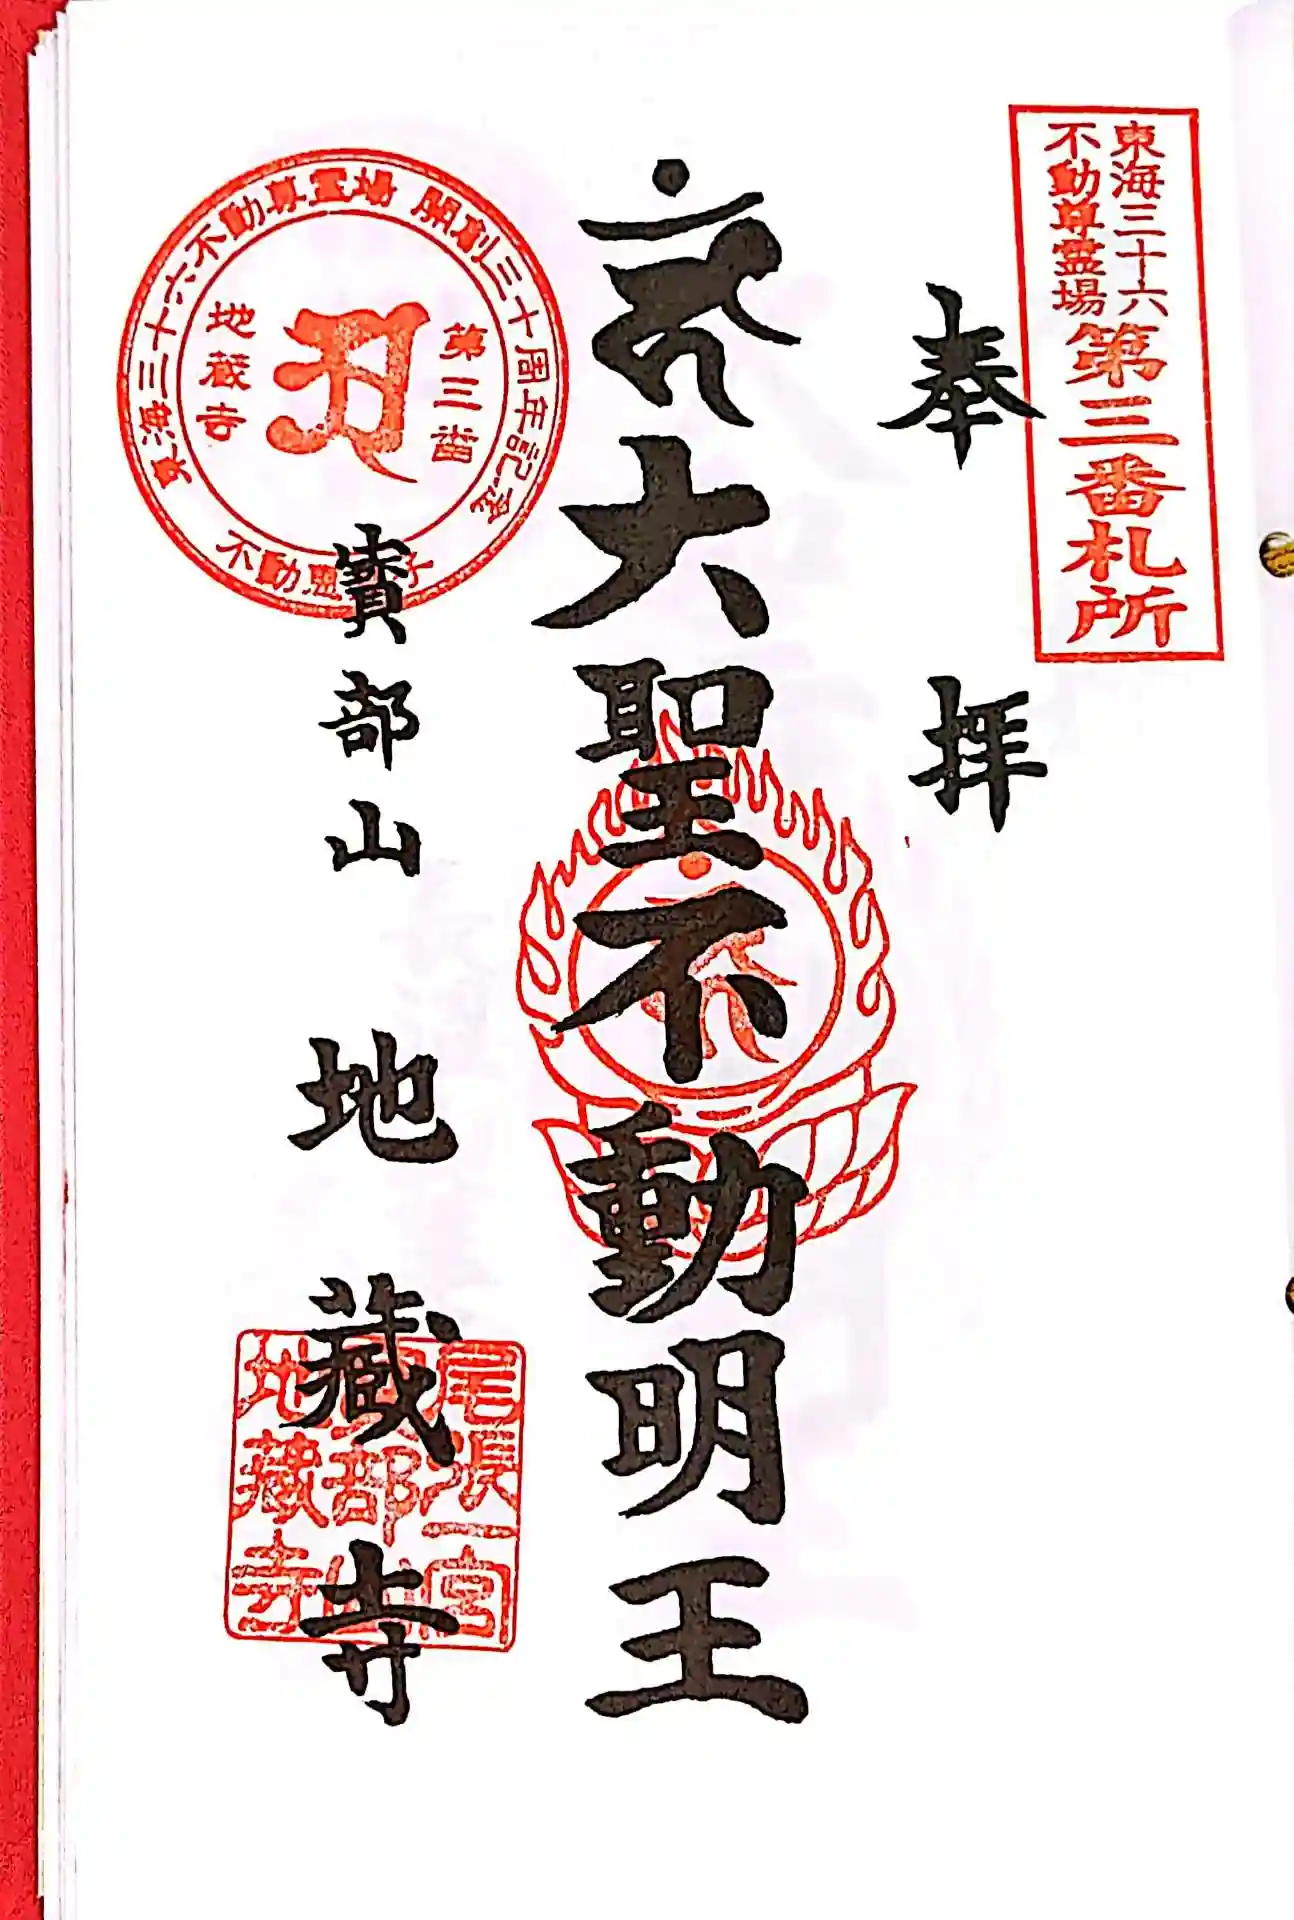 東海三十六
不動尊霊場
第三番札所
奉拝
大聖不動明王
寳部山
地蔵寺
東海三十六不動尊霊場 開創三十周年記念
第三番
地蔵寺
尾張一宮
部
地蔵寺